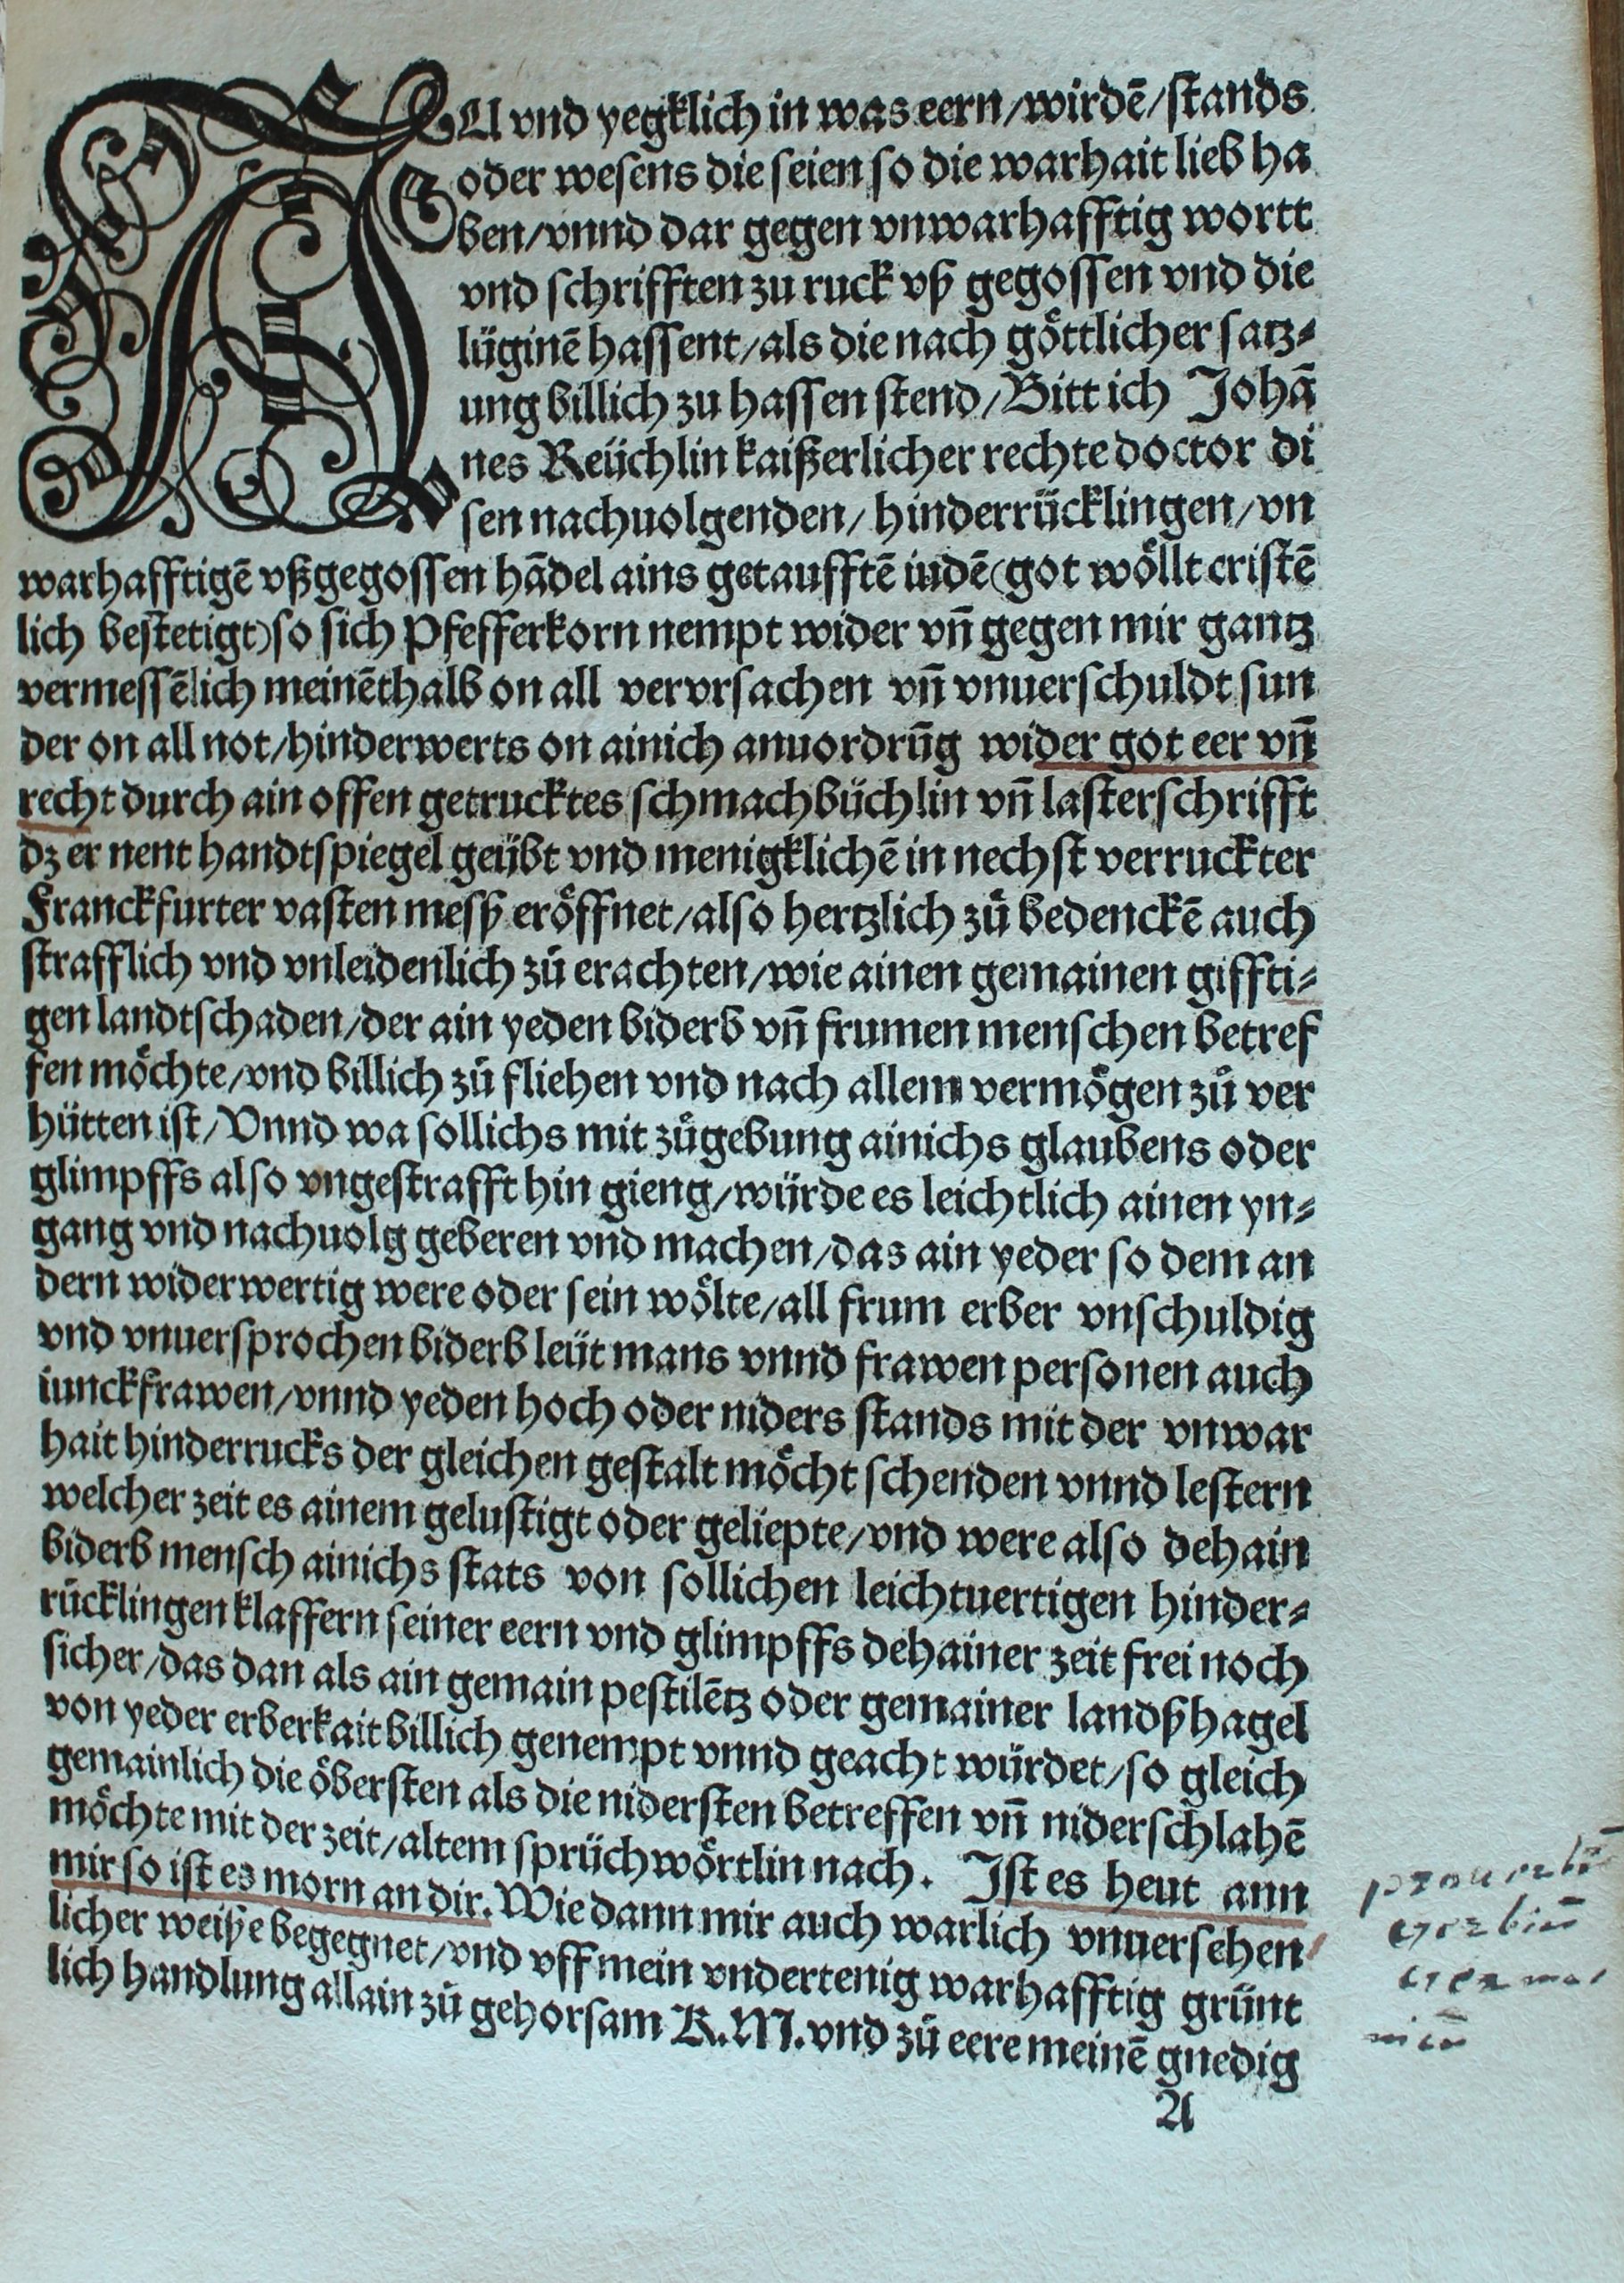 ALl vnd yegklich in was eern/wirdē/stands
oder wesens die seien so die warhait lieb ha
ben/vnnd dar gegen vnwarhafftig wortt
vnd schrifften zu ruck vß gegossen vnd die
lüginē hassent/als die nach goͤttlicher satz⸗
ung billich zu hassen stend/Bitt ich Johā
nes Reüchlin kaißerlicher rechte doctor di
sen nachuolgenden/hinderrücklingen/vn
warhafftigē vßgegossen hādel ains getaufftē iudē(got woͤllt cristē
lich bestetigt)so sich Pfefferkorn nempt wider vn̄ gegen mir gantz
vermessēlich meinēthalb on all vervrsachen vn̄ vnuerschuldt sun
der on all not/hinderwerts on ainich anuordrūg wider got eer vn̄
recht durch ain offen getrucktes schmachbüchlin vn̄ lasterschrifft
dz er nent handtspiegel geübt vnd menigklichē in nechst verruckter
Franckfurter vasten mesß eroͤffnet/also hertzlich zuͦ bedenckē auch
strafflich vnd vnleidenlich zuͦ erachten/wie ainen gemainen giffti⸗
gen landtschaden/der ain yeden biderb vn̄ frumen menschen betref
fen moͤchte/vnd billich zuͦ fliehen vnd nach allem vermoͤgen zuͦ ver
hütten ist/Vnnd wa sollichs mit zuͦgebung ainichs glaubens oder
glimpffs also vngestrafft hin gieng/würde es leichtlich ainen yn⸗
gang vnd nachuolg geberen vnd machen/das ain yeder so dem an
dern widerwertig were oder sein woͤlte/all frum erber vnschuldig
vnd vnuersprochen biderb leüt mans vnnd frawen personen auch
iunckfrawen/vnnd yeden hoch oder niders stands mit der vnwar
hait hinderrucks der gleichen gestalt moͤcht schenden vnnd lestern
welcher zeit es ainem gelustigt oder geliepte/vnd were also dehain
biderb mensch ainichs stats von sollichen leichtuertigen hinder⸗
rücklingen klaffern seiner eern vnd glimpffs dehainer zeit frei noch
sicher/das dan als ain gemain pestilētz oder gemainer landßhagel
von yeder erberkait billich genempt vnnd geacht würdet/so gleich
gemainlich die oͤbersten als die nidersten betreffen vn̄ niderschlahē
moͤchte mit der zeit/altem sprüchwoͤrtlin nach. Ist es heut ann
mir so ist es morn an dir. Wie dann mir auch warlich vnuersehen
licher weiße begegnet/vnd vff mein vndertenig warhafftig grünt
lich handlung allain zuͦ gehorsam K.M. vnd zuͦ eere meinē gnedig
A